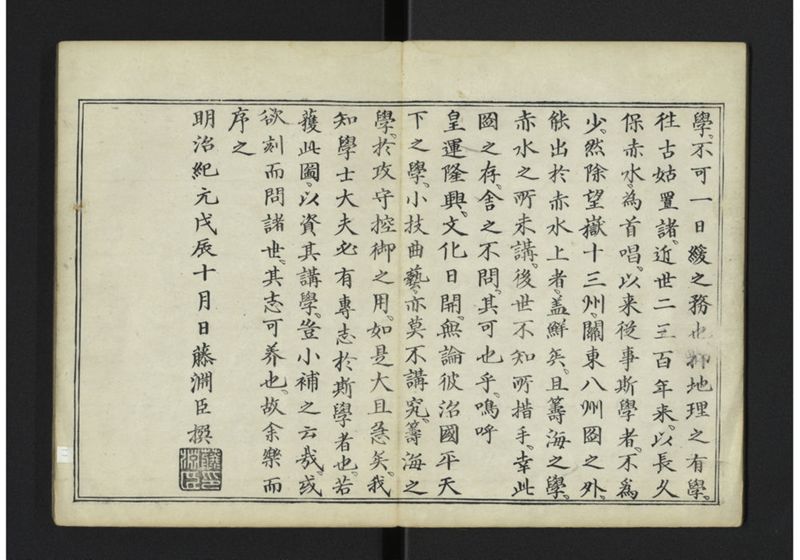 學。不可一日緩之務也。抑地理之有學。
徃古姑置諸。近世二三百年来。以長久
保赤水。為首唱。以来従事斯學者。不為
少。然除望嶽十三州。關東八州圖之外。
能出於赤水上者。盖鮮矣。且籌海之學。
赤水之所未講。後世不知所措手。幸此
圖之存。舎之不問。其可也乎。嗚呼
皇運隆興。文化日開。無論彼治國平天
下之學。小技曲藝。亦莫不講究。籌海之
學。於攻守控御之用。如是大且急矣。我
知學士大夫必有專志於斯學者也。若
獲此圖。以資其講學。豈小補之云哉。或
欲刻而問諸世。其志可养也。故余樂而
序之
明治紀元戊辰十月日藤淵臣撰